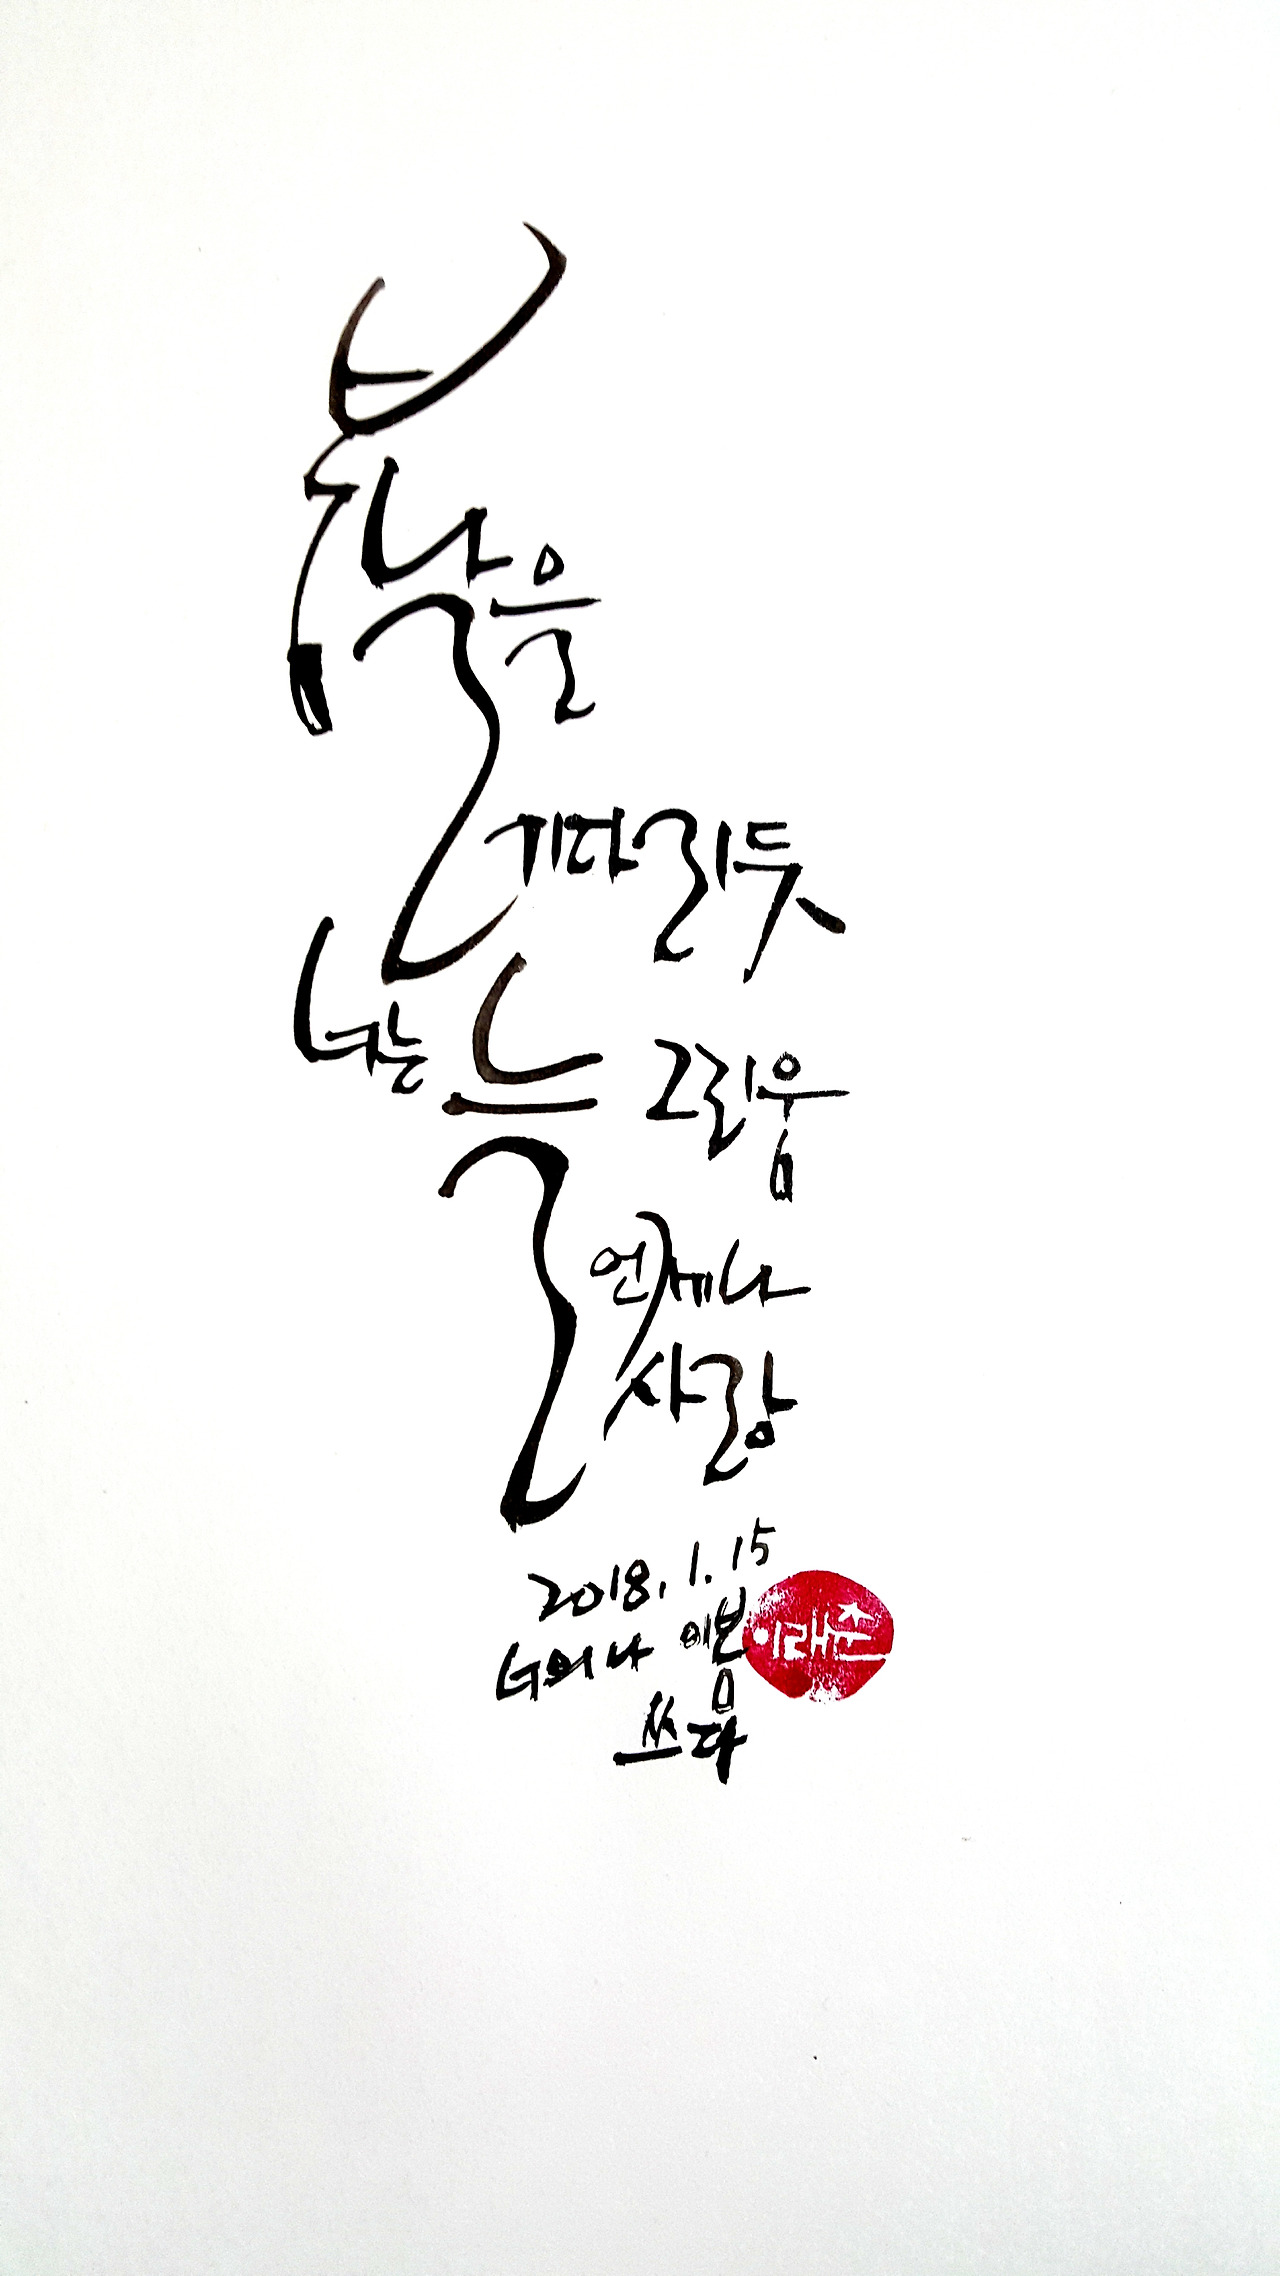 봄날을
기다리듯
너는 늘 그리움
언제나
사랑
2018.1.15
너의나 이봄
쓰다
이래춘